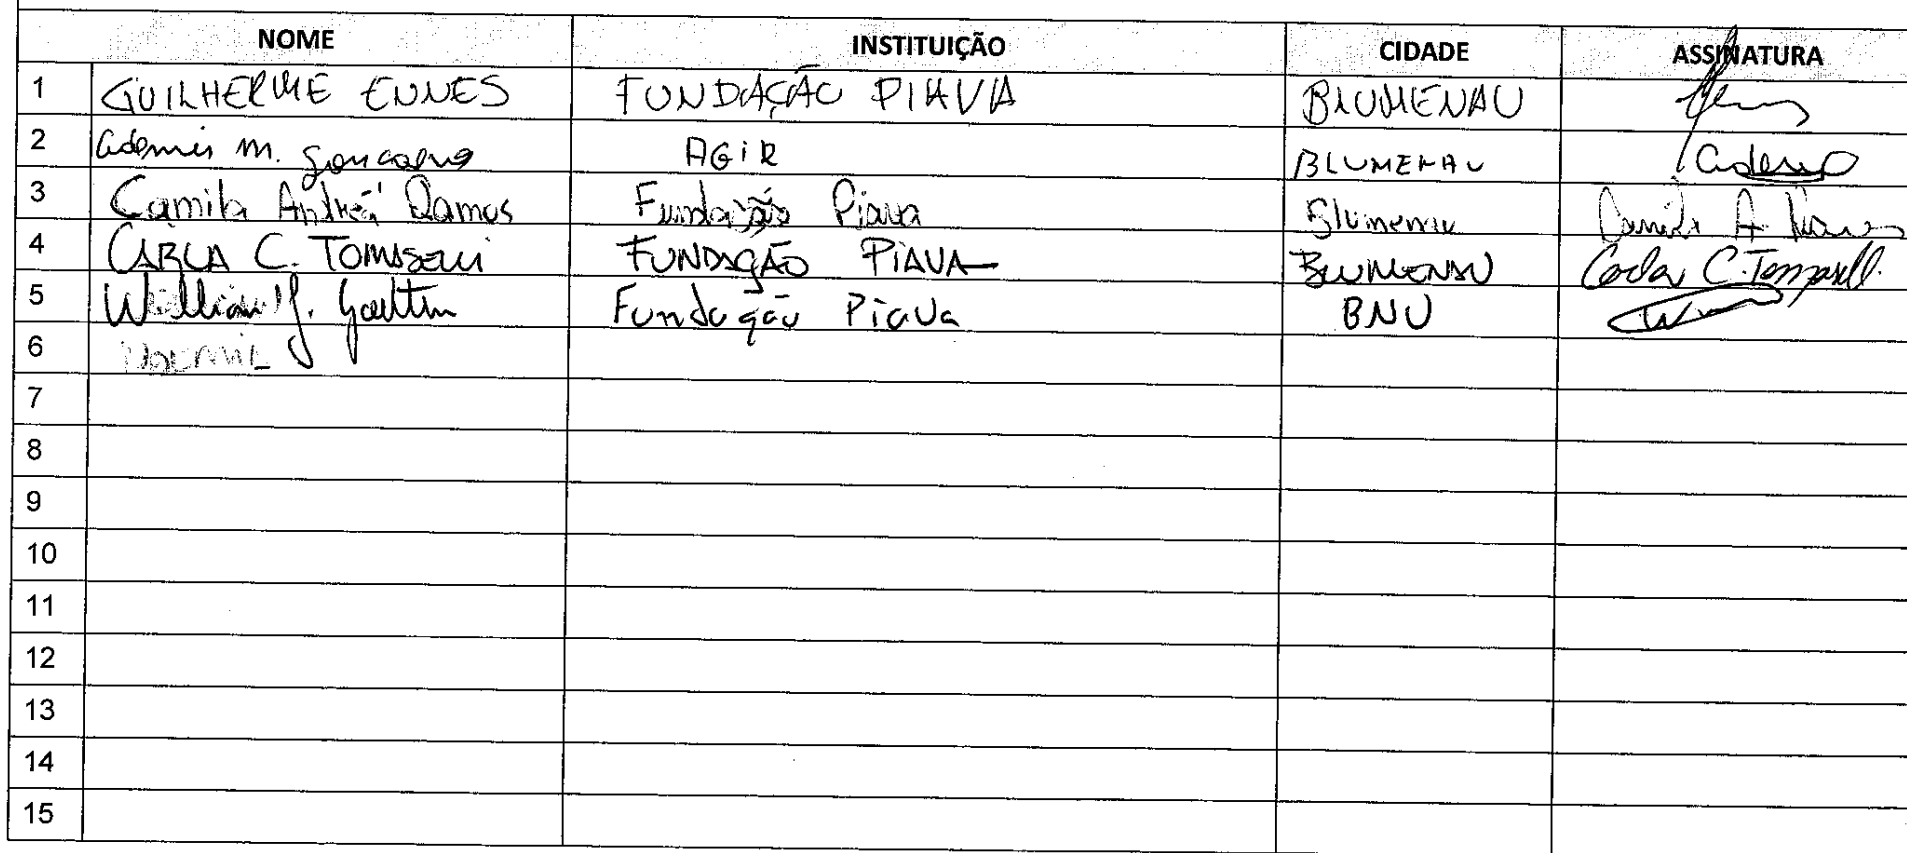 NOME INSTITUIÇÃO CIDADE ASSINATURA
1 GUILHERME ENNES FUNDAÇÃO PIAVA BLUMENAU
2 Ademir M. Gonçalves AGIR BLUMENAU
3 Camila Andréa Ramos Fundação Piava Blumenau Camila A. Ramos
4 CARLA C. TOMASELLI FUNDAÇÃO PIAVA BLUMENAU Carla C. Tomaselli
5 William J. Fundação Piava BNU
6
7
8
9
10
11
12
13
14
15